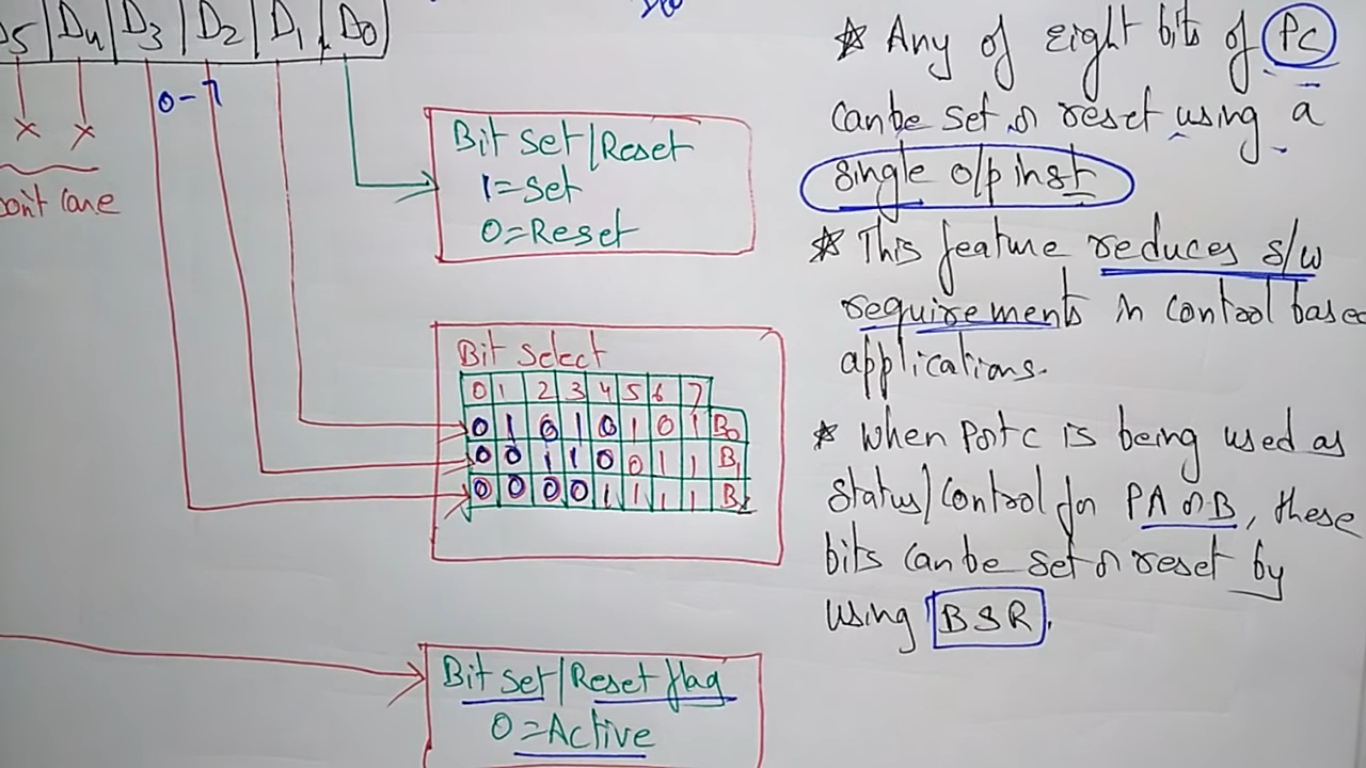 D5 D4 D3 D2 D1 D0
0-7
Don't care
Bit set/Reset
1=Set
0=Reset
Bit select
0 1 2 3 4 5 6 7
0 1 0 1 0 1 0 1 B0
0 0 1 1 0 0 1 1 B1
0 0 0 0 1 1 1 1 B2
Bit set/Reset flag
0=Active
* Any of eight bits of PC
can be set or reset using a
single o/p inst
* This feature reduces s/w
requirements in control based
applications.
* when Port c is being used as
status/control for PA or B, these
bits can be set or reset by
using BSR.